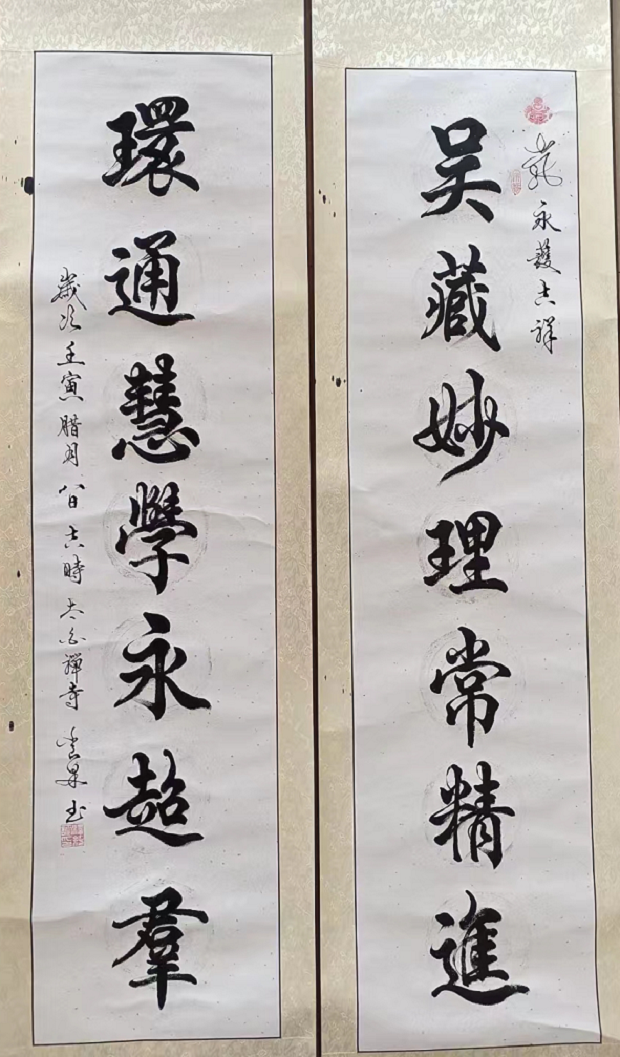 永護吉祥
吴藏妙理常精進
環通慧學永超羣
歲次壬寅腊月八日吉時太白禪寺